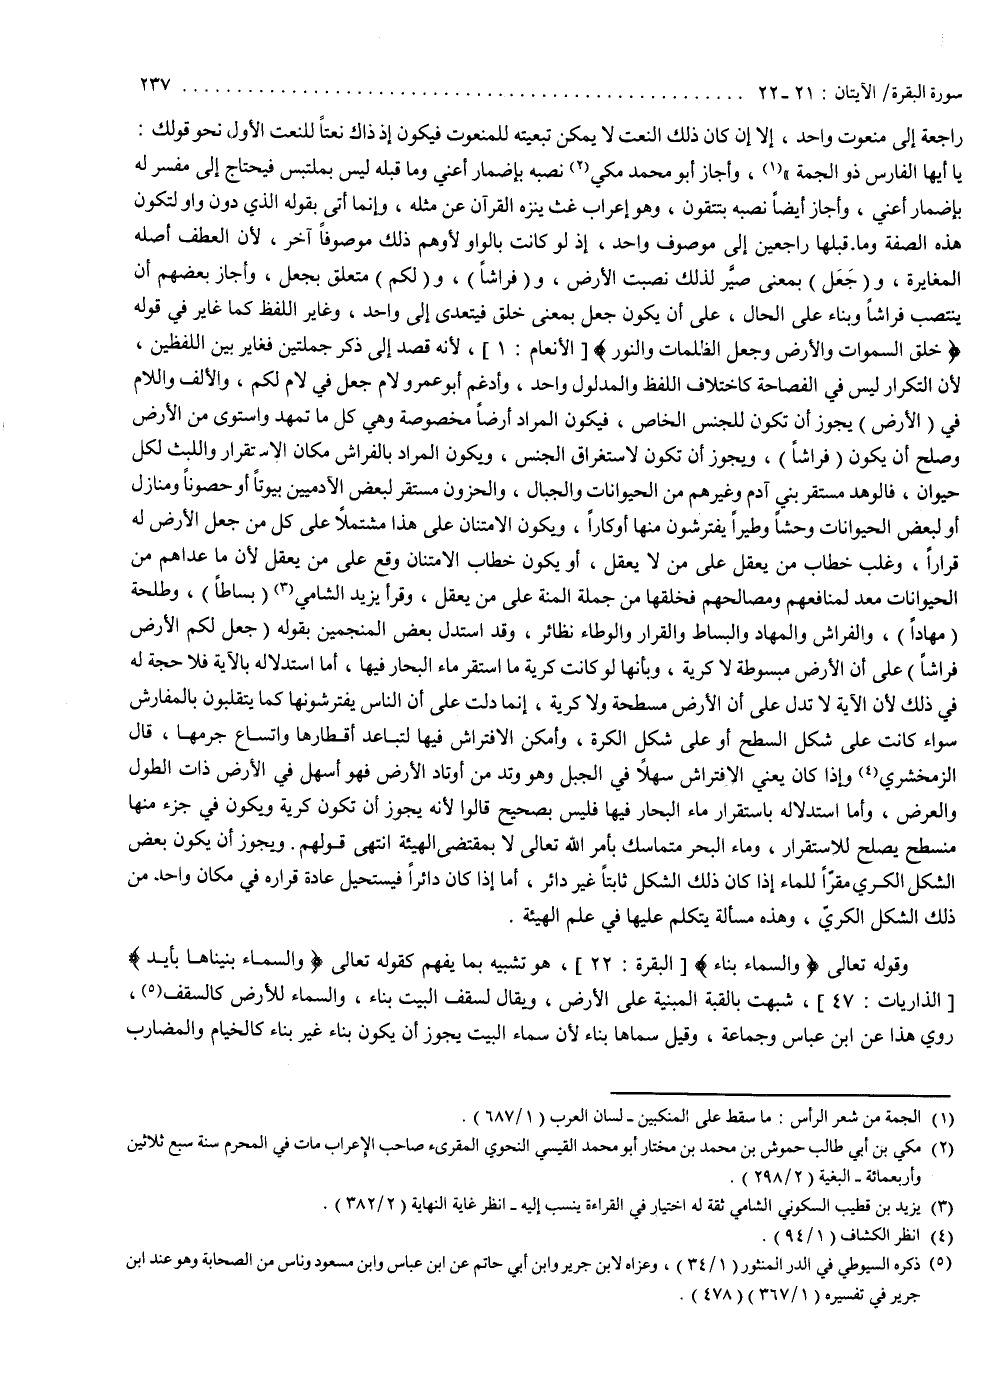 سورة البقرة/ الآيتان : ٢١ -٢٢ ............................................. ٢٣٧
راجعة إلى منعوت واحد ، إلا إن كان ذلك النعت لا يمكن تبعيته للمنعوت فيكون إذ ذاك نعتاً للنعت الأول نحو قولك :
يا أيها الفارس ذو الجمة »(١) ، وأجاز أبو محمد مكي(٢) نصبه بإضمار أعني وما قبله ليس بملتبس فيحتاج إلى مفسر له
بإضمار أعني ، وأجاز أيضاً نصبه بتتقون ، وهو إعراب غث ينزه القرآن عن مثله ، وإنما أتى بقوله الذي دون واو لتكون
هذه الصفة وما قبلها راجعين إلى موصوف واحد ، إذ لو كانت بالواو لأوهم ذلك موصوفاً آخر ، لأن العطف أصله
المغايرة ، و ( جَعَل ) بمعنى صيَّر لذلك نصبت الأرض ، و ( فراشاً ) ، و ( لكم ) متعلق بجعل ، وأجاز بعضهم أن
ينتصب فراشاً وبناء على الحال ، على أن يكون جعل بمعنى خلق فيتعدى إلى واحد ، وغاير اللفظ كما غاير في قوله
﴿ خلق السموات والأرض وجعل الظلمات والنور ﴾ [ الأنعام : ١ ] ، لأنه قصد إلى ذكر جملتين فغاير بين اللفظين ،
لأن التكرار ليس في الفصاحة كاختلاف اللفظ والمدلول واحد ، وأدغم أبو عمرو لام جعل في لام لكم ، والألف واللام
في ( الأرض ) يجوز أن تكون للجنس الخاص ، فيكون المراد أرضاً مخصوصة وهي كل ما تمهد واستوى من الأرض
وصلح أن يكون ( فراشاً ) ، ويجوز أن تكون لاستغراق الجنس ، ويكون المراد بالفراش مكان الاستقرار واللبث لكل
حيوان ، فالوهد مستقر بني آدم وغيرهم من الحيوانات والجبال ، والحزون مستقر لبعض الآدميين بيوتاً أو حصوناً ومنازل
أو لبعض الحيوانات وحشاً وطيراً يفترشون منها أوكاراً ، ويكون الامتنان على هذا مشتملاً على كل من جعل الأرض له
قراراً ، وغلب خطاب من يعقل على من لا يعقل ، أو يكون خطاب الامتنان وقع على من يعقل لأن ما عداهم من
الحيوانات معد لمنافعهم ومصالحهم فخلقها من جملة المنة على من يعقل ، وقرأ يزيد الشامي(٣) ( بساطاً ) ، وطلحة
( مهاداً ) ، والفراش والمهاد والبساط والقرار والوطاء نظائر ، وقد استدل بعض المنجمين بقوله ( جعل لكم الأرض
فراشاً ) على أن الأرض مبسوطة لا كرية ، وبأنها لو كانت كرية ما استقر ماء البحار فيها ، أما استدلاله بالآية فلا حجة له
في ذلك لأن الآية لا تدل على أن الأرض مسطحة ولا كرية ، إنما دلت على أن الناس يفترشونها كما يتقلبون بالمفارش
سواء كانت على شكل السطح أو على شكل الكرة ، وأمكن الافتراش فيها لتباعد أقطارها واتساع جرمها ، قال
الزمخشري(٤) وإذا كان يعني الافتراش سهلاً في الجبل وهو وتد من أوتاد الأرض فهو أسهل في الأرض ذات الطول
والعرض ، وأما استدلاله باستقرار ماء البحار فيها فليس بصحيح قالوا لأنه يجوز أن تكون كرية ويكون في جزء منها
منسطح يصلح للاستقرار ، وماء البحر متماسك بأمر الله تعالى لا بمقتضى الهيئة انتهى قولهم . ويجوز أن يكون بعض
الشكل الكري مقرّاً للماء إذا كان ذلك الشكل ثابتاً غير دائر ، أما إذا كان دائراً فيستحيل عادة قراره في مكان واحد من
ذلك الشكل الكريّ ، وهذه مسألة يتكلم عليها في علم الهيئة .
وقوله تعالى ﴿ والسماء بناء ﴾ [ البقرة : ٢٢ ] ، هو تشبيه بما يفهم كقوله تعالى ﴿ والسماء بنيناها بأيد ﴾
[ الذاريات : ٤٧ ] ، شبهت بالقبة المبنية على الأرض ، ويقال لسقف البيت بناء ، والسماء للأرض كالسقف(٥) ،
روي هذا عن ابن عباس وجماعة ، وقيل سماها بناء لأن سماء البيت يجوز أن يكون بناء غير بناء كالخيام والمضارب
(١) الجمة من شعر الرأس : ما سقط على المنكبين - لسان العرب ( ٦٨٧/١ ) .
(٢) مكي بن أبي طالب حموش بن محمد بن مختار أبو محمد القيسي النحوي المقرىء صاحب الإعراب مات في المحرم سنة سبع ثلاثين
وأربعمائة - البغية ( ٢٩٨/٢ ) .
(٣) يزيد بن قطيب السكوني الشامي ثقة له اختيار في القراءة ينسب إليه - انظر غاية النهاية ( ٣٨٢/٢ ) .
(٤) انظر الكشاف ( ٩٤/١ ) .
(٥) ذكره السيوطي في الدر المنثور ( ٣٤/١ ) ، وعزاه لابن جرير وابن أبي حاتم عن ابن عباس وابن مسعود وناس من الصحابة وهو عند ابن
جرير في تفسيره ( ٣٦٧/١ ) ( ٤٧٨ ) .